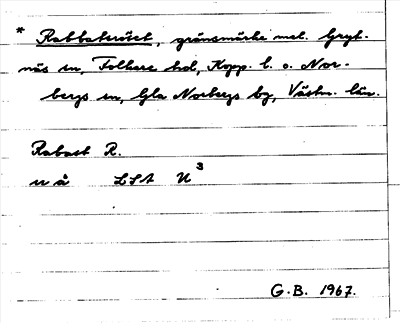 * Rabbateröset, gränsmärke mel. Gryt-
näs sn, Folkare hd, Kopp. l. o. Nor-
bergs sn, Gla Norbergs bg, Västm. län.
Rabast R.
u å LSA U³
G.B. 1967.